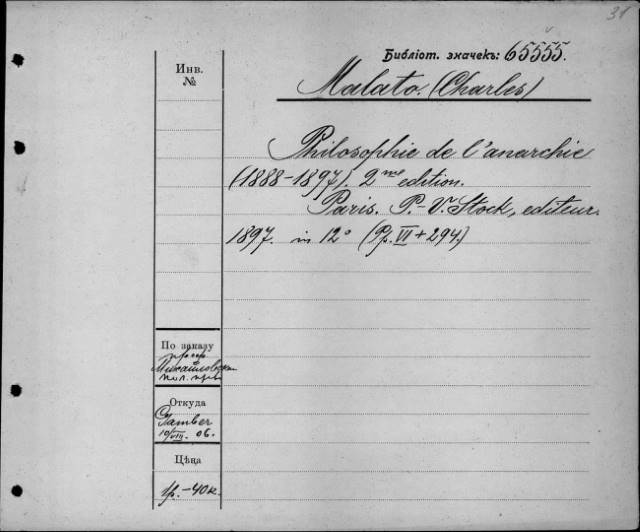 31
Библіот. значекъ: 65555.
Инв.
№
Malato. (Charles)
Philosophie de l'anarchie
(1888-1897). 2me edition.
Paris. P.-V. Stock, editeur.
1897. in 12° (Pp. VI + 294.)
По заказу
проф
Михайловска
пол.
Откуда
Gamber
10/VIII. 06.
Цѣна
1р.-40к.